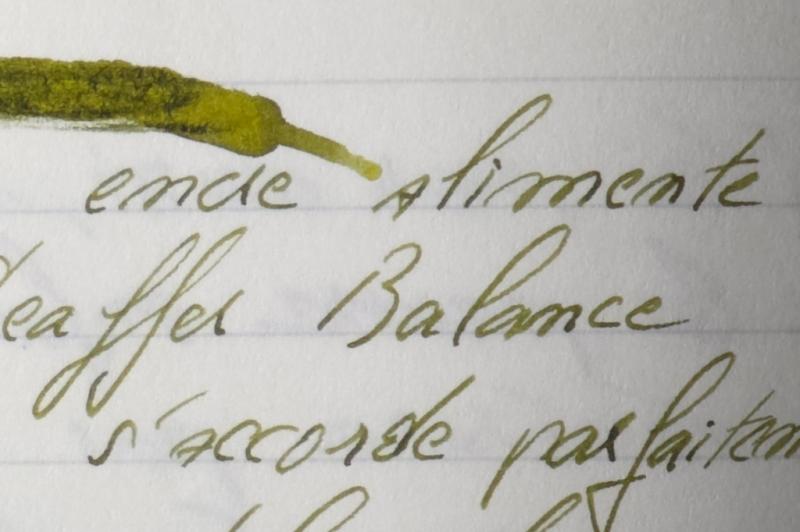 encre alimente
eaffer Balance
s'accorde parfaitem